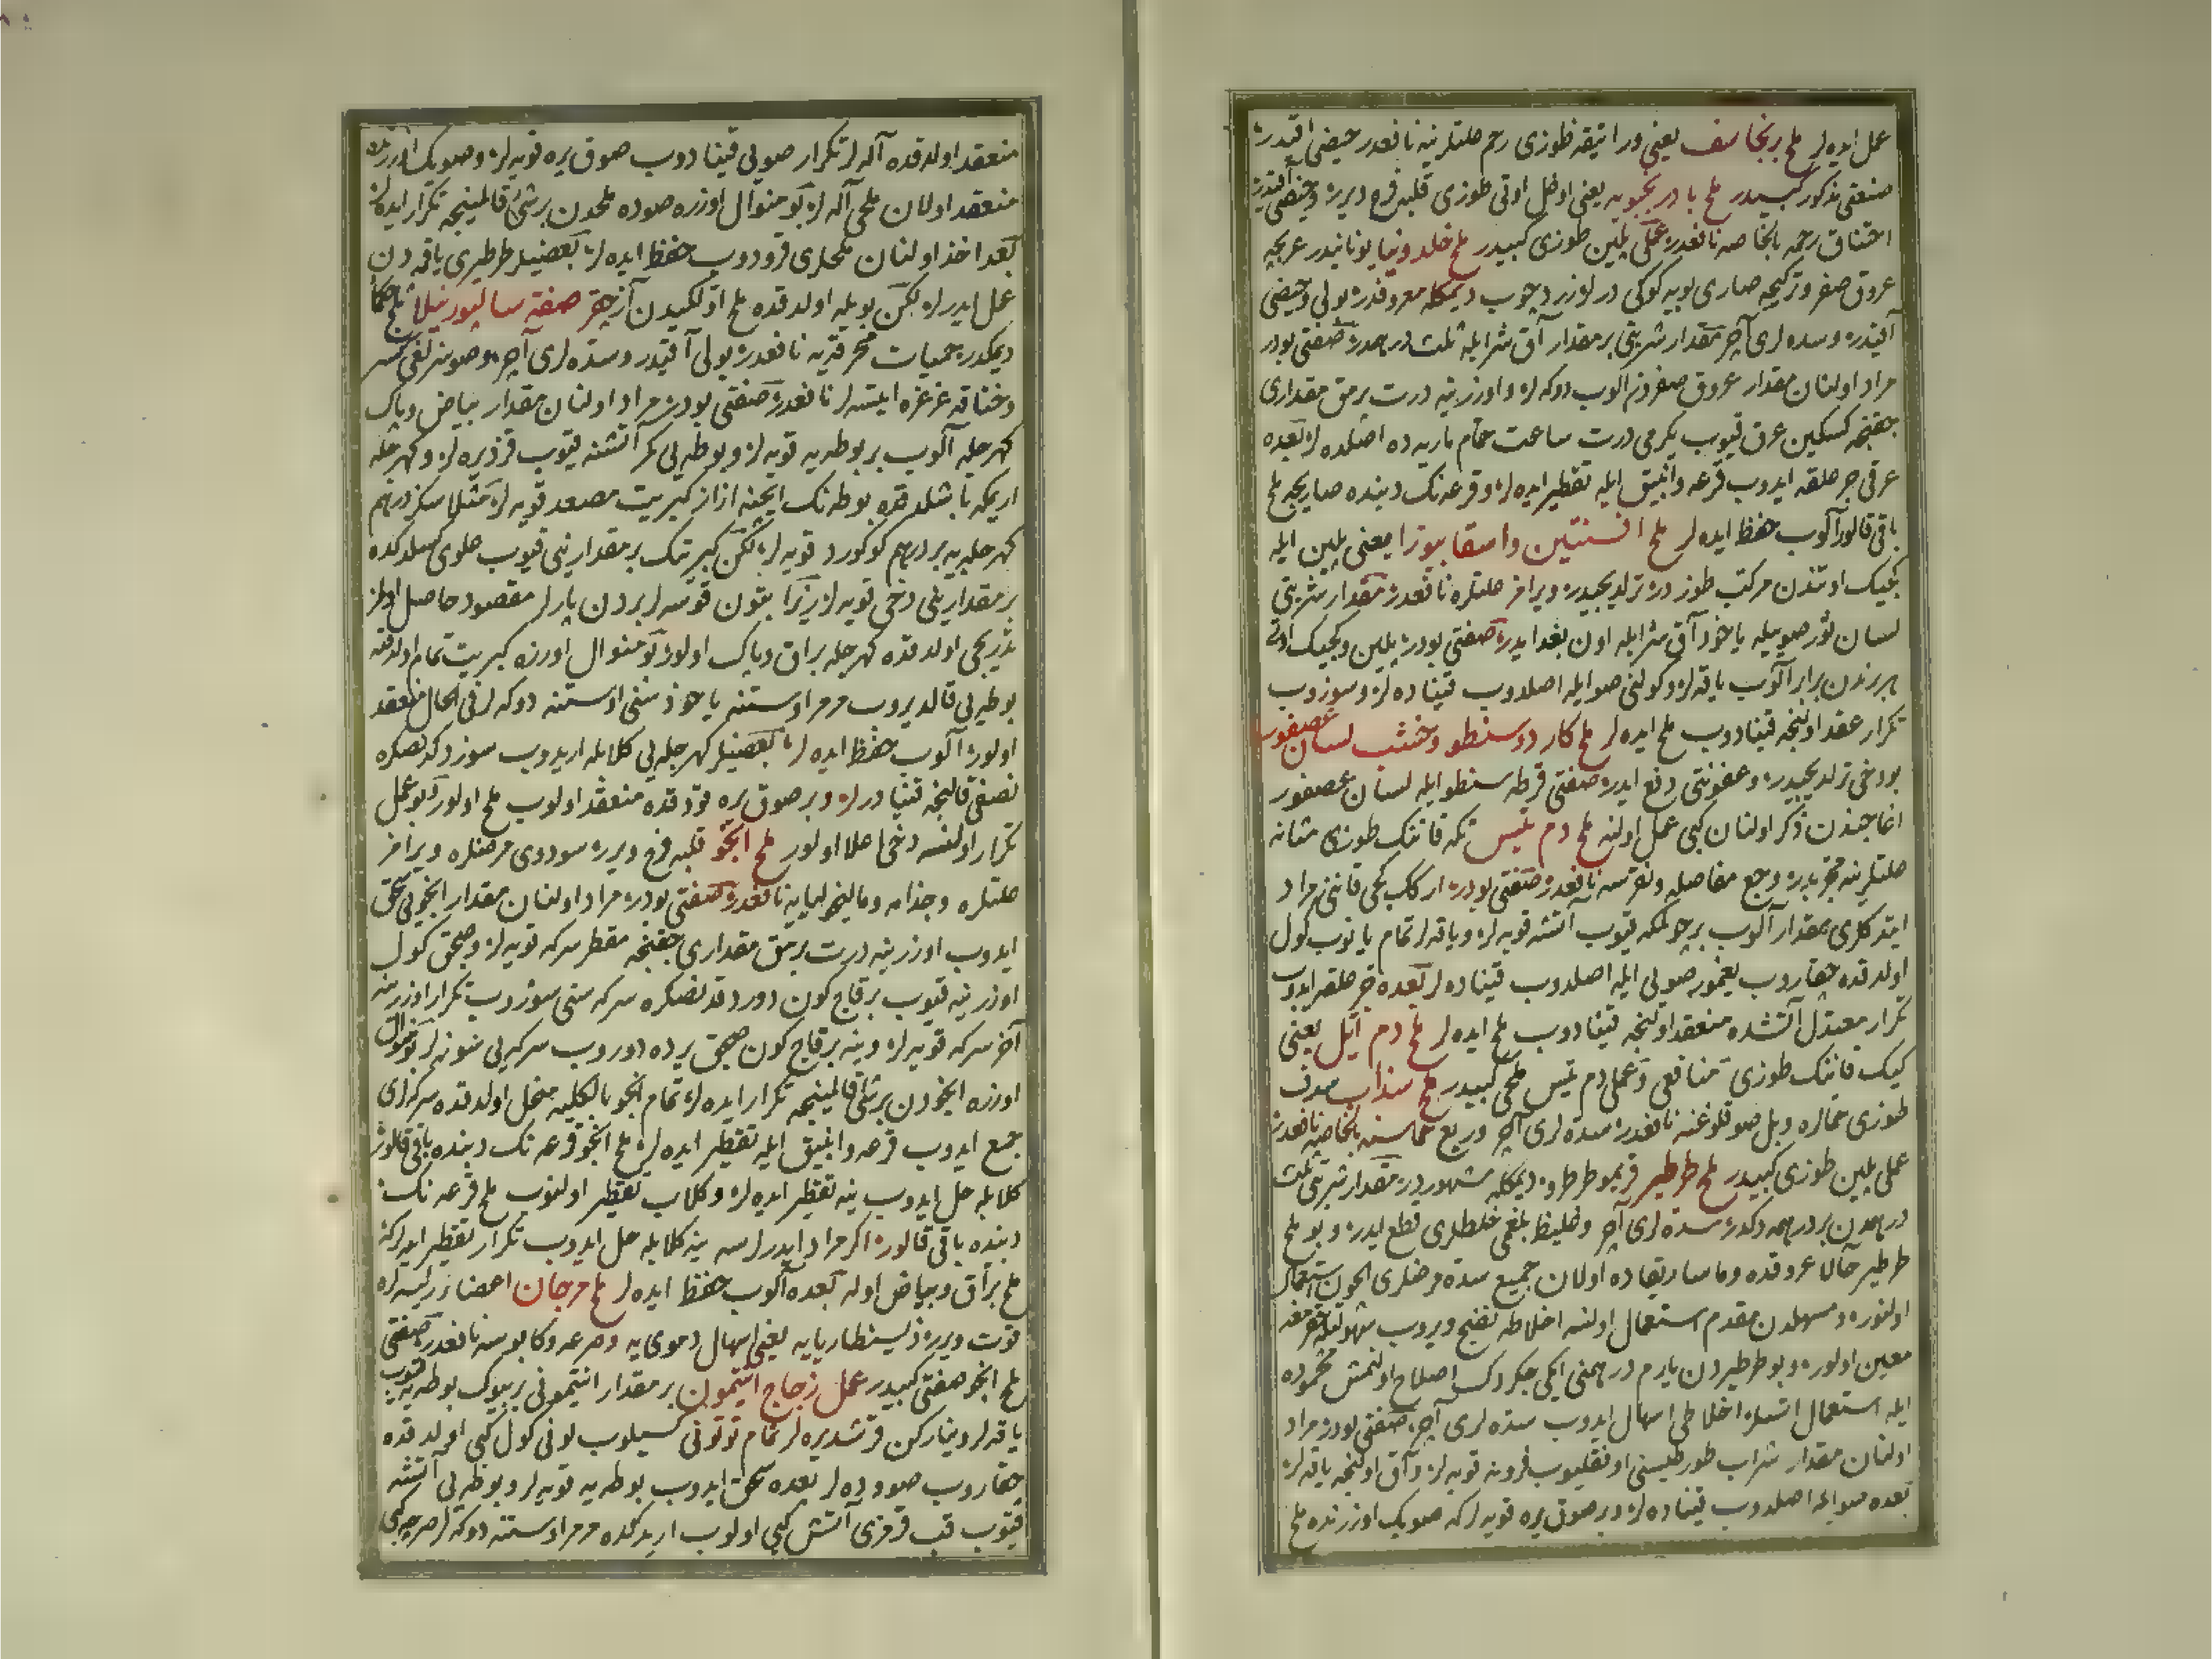 عمل ایده لر ملح برنجاسف یعنی ورا نیقه طوزی رحم علتلرینه نافعدر حیضی اقیدر
صنعتی مذکور کبیدر ملح بادرنجبویه یعنی اوغل اوتی طوزی قلبه فرح ویرر وحیضی اقیدر
اختناق رحمه بالخاصه نافعدر عملی پلین طوزی کبیدر ملح خلدونیا یونانیدر عربیجه
عروق صفر وترکیجه صاری بویه کوکی درلر زردچوب دیمکله معروفدر بولی وحیضی
اقیدر وسده لری آچر مقدار شربتی بر مقدار آق شرابله ثلث درهمدر صنعتی بودر
مراد اولنان مقدار عروق صفردن الوب دوکه لر واوزرینه درت برمق مقداری
چقنجه کسکین عرق قیوب یکرمی درت ساعت حمام ماریه ده اصلده لر بعده
عرقی جر علقه ایدوب قرعه وانبیق ایله تقطیر ایده لر قرعه نک دبنده صاریجه ملح
باقی قالور آلوب حفظ ایده لر ملح افسنتین واسقابیوزا یعنی پلین ایله
کجیک اوتندن مرکب طوزدر ترلدیجیدر ویرامز علتلره نافعدر مقدار شربتی
لسان ثور صوییله یاخود آق شرابله اون بغدایدر صنعتی بودر پلین وکجیک اوتی
بربرندن برابر آلوب یاقه لر وکولنی صو ایله اصلدوب قیناده لر وسوزوب
تکرار عقد اولنجه قینادوب ملح ایده لر ملح کاردوسنطو وخشب لسان عصفور
بودخی ترلدیجیدر وعفونتی دفع ایدر صنعتی قرطه سنطو ایله لسان عصفور
اغاجندن ذکر اولنان کبی عمل اولنه ملح دم تیس تکه قاننک طوزی مثانه
علتلرینه مجربدر وجع مفاصله ونقرسه نافعدر صنعتی بودر ارکک کچی قاننی مراد
ایتدکلری مقدار آلوب بر چولمکه قیوب آتشه قویه لر ویاقه لر تمام یانوب کول
اولدقده چقاروب یغمور صویی ایله اصلدوب قیناده لر بعده جر علقه ایدوب
تکرار معتدل آتشده منعقد اولنجه قینادوب ملح ایده لر ملح دم ایل یعنی
کیک قاننک طوزی منافعی وعملی دم تیس ملحی کبیدر ملح سذاب صدف
طوزی خمالره وبل صوقلوغنه نافعدر سده لری آچر وربع حماسنه بالخاصه نافعدر
عملی پلین طوزی کبیدر ملح طرطیر قریمو طرطرو دیمکله مشهوردر مقدار شربتی ثلث
درهمدن بر درهمه دکدر سده لری آچر وغلیظ بلغمی خلطلری قطع ایدر وبو ملح
طرطیر حالا عروقده وماساریقاده اولان جمیع سده مرضلری ایچون استعمال
اولنور ومسهلدن مقدم استعمال اولنسه اخلاطه نضج ویروب سهولتله
معین اولور وبو طرطیردن یارم درهمنی ایکی چکردک اصلاح اولنمش محموده
ایله استعمال ایتسلر اخلاطی اسهال ایدوب سده لری آچر صنعتی بودر مراد
اولنان مقدار شراب طورطیسنی اوفقلیوب فرونه قویه لر وآق اولنجه یاقه لر
بعده صو ایله اصلدوب قیناده لر وبر صوق یره قویه لر که صویک اوزرنده ملح
منعقد اولدقده آله لر تکرار صویی قینادوب صوق یره قویه لر وصویک اوزرنده
منعقد اولان ملحی آله لر بو منوال اوزره صوده ملحدن برشی قالمینجه تکرار ایده لر
بعد اخذ اولنان ملحلری قورودوب حفظ ایده لر بعضیلر طرطیری یاقمه دن
عمل ایدرلر لکن بویله اولدقده ملح اولکیدن آز چقر صفة سالپورنیلا ملح
دیمکدر حمیات محرقه یه نافعدر بولی آقیدر وسده لری آچر وصوسزلغی کسر
وخناقه غرغره ایتسه لر نافعدر صنعتی بودر مراد اولنان مقدار بیاض وپاک
کهرجله آلوب بر بوطه یه قویه لر وبوطه یی کمر آتشنه قیوب قزدیره لر وکهرجله
اریمکه باشلدقده بوطه نک ایچنه ازاز کبریت مصعد قویه لر مثلا سکز درهم
کهرجله یه بر درهم کوکورد قویه لر لکن کبریتک بر مقدارینی قیوب علوی کسلدکده
بر مقدارینی دخی قویه لر زیرا بتون قوسه لر بردن پارلر مقصود حاصل اولمز
تدریجی اولدقده کهرجله براق وپاک اولور بو منوال اوزره کبریت تمام اولدقده
بوطه یی قالدیروب مرمر اوستنه یاخود سنی اوستنه دوکه لر فی الحال منعقد
اولور آلوب حفظ ایده لر بعضیلر کهرجله یی کلابله اریدوب سوزدکدنصکره
نصفی قالنجه قینادرلر وبر صوق یره قودقده منعقد اولوب ملح اولور بو عمل
تکرار اولنسه دخی اعلا اولور ملح انجو قلبه فرح ویرر سوداوی مرضلره ویرامز
علتلره وجذامه ومالیخولیایه نافعدر صنعتی بودر مراد اولنان مقدار انجویی سحق
ایدوب اوزرینه درت برمق مقداری چقنجه مقطر سرکه قویه لر وصیجق کول
اوزرینه قیوب بر قاچ کون دوردقدنصکره سرکه سنی سوزوب تکرار اوزرینه
آخر سرکه قویه لر وینه بر قاچ کون صیجق یرده دوروب سرکه یی سوزه لر بو منوال
اوزره انجودن برشی قالمینجه تکرار ایده لر تمام انجو بالکلیه منحل اولدقده سرکه لری
جمع ایدوب قرعه وانبیق ایله تقطیر ایده لر ملح انجو قرعه نک دبنده باقی قالور
کلابله حل ایدوب ینه تقطیر ایده لر وکلاب تقطیر اولنوب ملح قرعه نک
دبنده باقی قالور اکر مراد ایدرلرسه ینه کلابله حل ایدوب تکرار تقطیر ایده لر که
ملح براق وبیاض اوله بعده آلوب حفظ ایده لر ملح مرجان اعضاء رئیسه لره
قوت ویرر ذیسنطاریایه یعنی اسهال دموی یه وصرعه وکابوسه نافعدر صنعتی
ملح انجو صنعتی کبیدر عمل زجاج انتیمون بر مقدار انتیمونی بر بیوک بوطه یه قیوب
یاقه لر ویناركن قرشدیره لر تمام توتونی کسیلوب لونی کول کبی اولدقده
چقاروب صووده لر بعده سحق ایدوب بوطه یه قویه لر وبوطه یی آتشه
قیوب قب قرمزی آتش کبی اولوب اریدکده مرمر اوستنه دوکه لر صرچه کبی